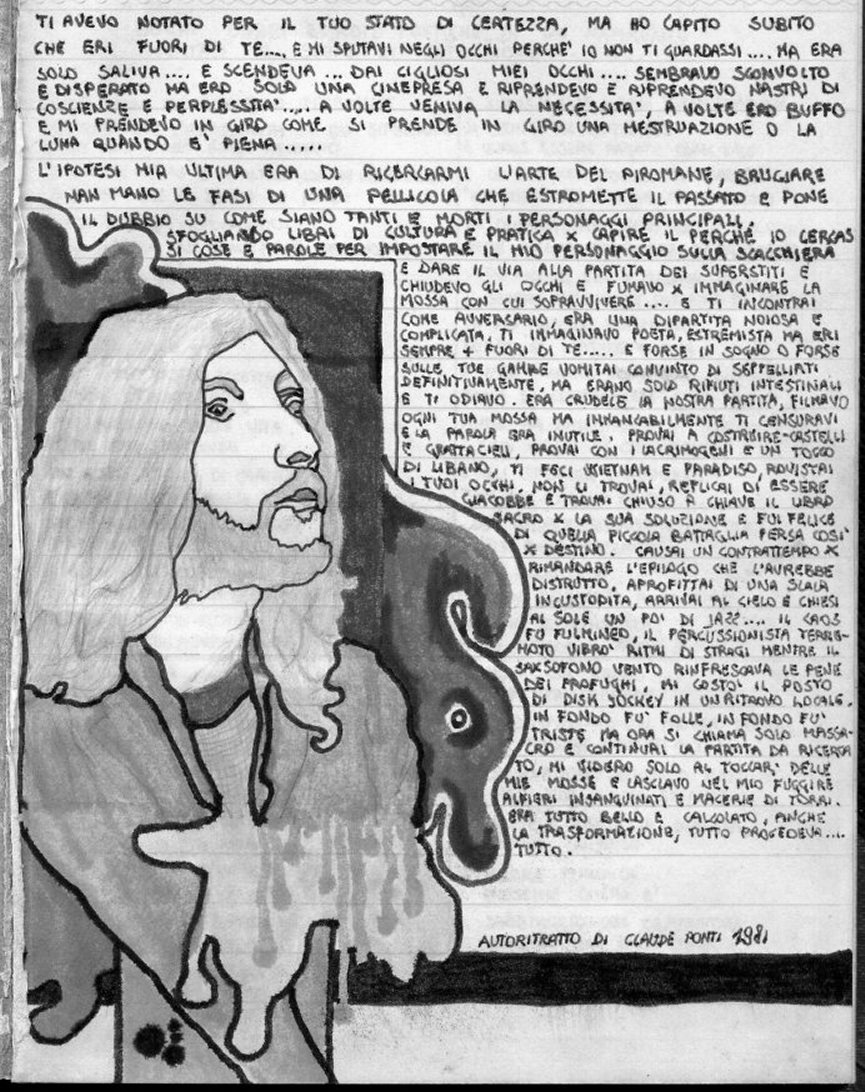 TI AVEVO NOTATO PER IL TUO STATO DI CERTEZZA, MA HO CAPITO SUBITO
CHE ERI FUORI DI TE...., E MI SPUTAVI NEGLI OCCHI PERCHE' IO NON TI GUARDASSI .... MA ERA
SOLO SALIVA .... E SCENDEVA ... DAI CIGLIOSI MIEI OCCHI .... SEMBRAVO SCONVOLTO
E DISPERATO MA ERO SOLO UNA CINEPRESA E RIPRENDEVO E RIPRENDEVO NASTRI DI
COSCIENZE E PERPLESSITA'..... A VOLTE VENIVA LA NECESSITA', A VOLTE ERO BUFFO
E MI PRENDEVO IN GIRO COME SI PRENDE IN GIRO UNA MESTRUAZIONE O LA
LUNA QUANDO E' PIENA .....
L'IPOTESI MIA ULTIMA ERA DI RICERCARMI L'ARTE DEL PIROMANE, BRUCIARE
MAN MANO LE FASI DI UNA PELLICOLA CHE ESTROMETTE IL PASSATO E PONE
IL DUBBIO SU COME SIANO TANTI E MORTI I PERSONAGGI PRINCIPALI.
SFOGLIANDO LIBRI DI CULTURA E PRATICA X CAPIRE IL PERCHE IO CERCAS
SI COSE E PAROLE PER IMPOSTARE IL MIO PERSONAGGIO SULLA SCACCHIERA
E DARE IL VIA ALLA PARTITA DEI SUPERSTITI E
CHIUDEVO GLI OCCHI E FUMAVO X IMMAGINARE LA
MOSSA CON CUI SOPRAVVIVERE .... E TI INCONTRAI
COME AVVERSARIO, ERA UNA DIPARTITA NOIOSA E
COMPLICATA. TI IMMAGINAVO POETA, ESTREMISTA MA ERI
SEMPRE + FUORI DI TE..... E FORSE IN SOGNO O FORSE
SULLE TUE GAMBE VOMITAI CONVINTO DI SEPPELLIRTI
DEFINITIVAMENTE, MA ERANO SOLO RIFIUTI INTESTINALI
E TI ODIAVO. ERA CRUDELE LA NOSTRA PARTITA, FILMAVO
OGNI TUA MOSSA MA IMMANCABILMENTE TI CENSURAVI
E LA PAROLA ERA INUTILE. PROVAI A COSTRUIRE CASTELLI
E GRATTACIELI, PROVAI CON I LACRIMOGENI E UN TOCCO
DI LIBANO, TI FECI VIETNAM E PARADISO, ROVISTAI
I TUOI OCCHI. NON LI TROVAI, REPLICAI DI ESSERE
GIACOBBE E TROVAI CHIUSO A CHIAVE IL LIBRO
SACRO X LA SUA SOLUZIONE E FUI FELICE
DI QUELLA PICCOLA BATTAGLIA PERSA COSI'
X DESTINO. CAUSAI UN CONTRATTEMPO X
RIMANDARE L'EPILOGO CHE L'AVREBBE
DISTRUTTO, APROFITTAI DI UNA SCALA
INCUSTODITA, ARRIVAI AL CIELO E CHIESI
AL SOLE UN PO' DI JAZZ.... IL CAOS
FU FULMINEO, IL PERCUSSIONISTA TERRE-
MOTO VIBRO' RITMI DI STRAGI MENTRE IL
SAXSOFONO VENTO RINFRESCAVA LE PENE
DEI PROFUGHI, MI COSTO' IL POSTO
DI DISK JOCKEY IN UN RITROVO LOCALE.
IN FONDO FU' FOLLE, IN FONDO FU'
TRISTE MA ORA SI CHIAMA SOLO MASSA-
CRO E CONTINUAI LA PARTITA DA RICERCA
TO, MI VIDERO SOLO AL TOCCAR' DELLE
MIE MOSSE E LASCIAVO NEL MIO FUGGIRE
ALFIERI INSANGUINATI E MACERIE DI TORRI.
ERA TUTTO BELLO E CALCOLATO, ANCHE
LA TRASFORMAZIONE, TUTTO PROCEDEVA....
TUTTO.
AUTORITRATTO DI CLAUDE PONTI 1981